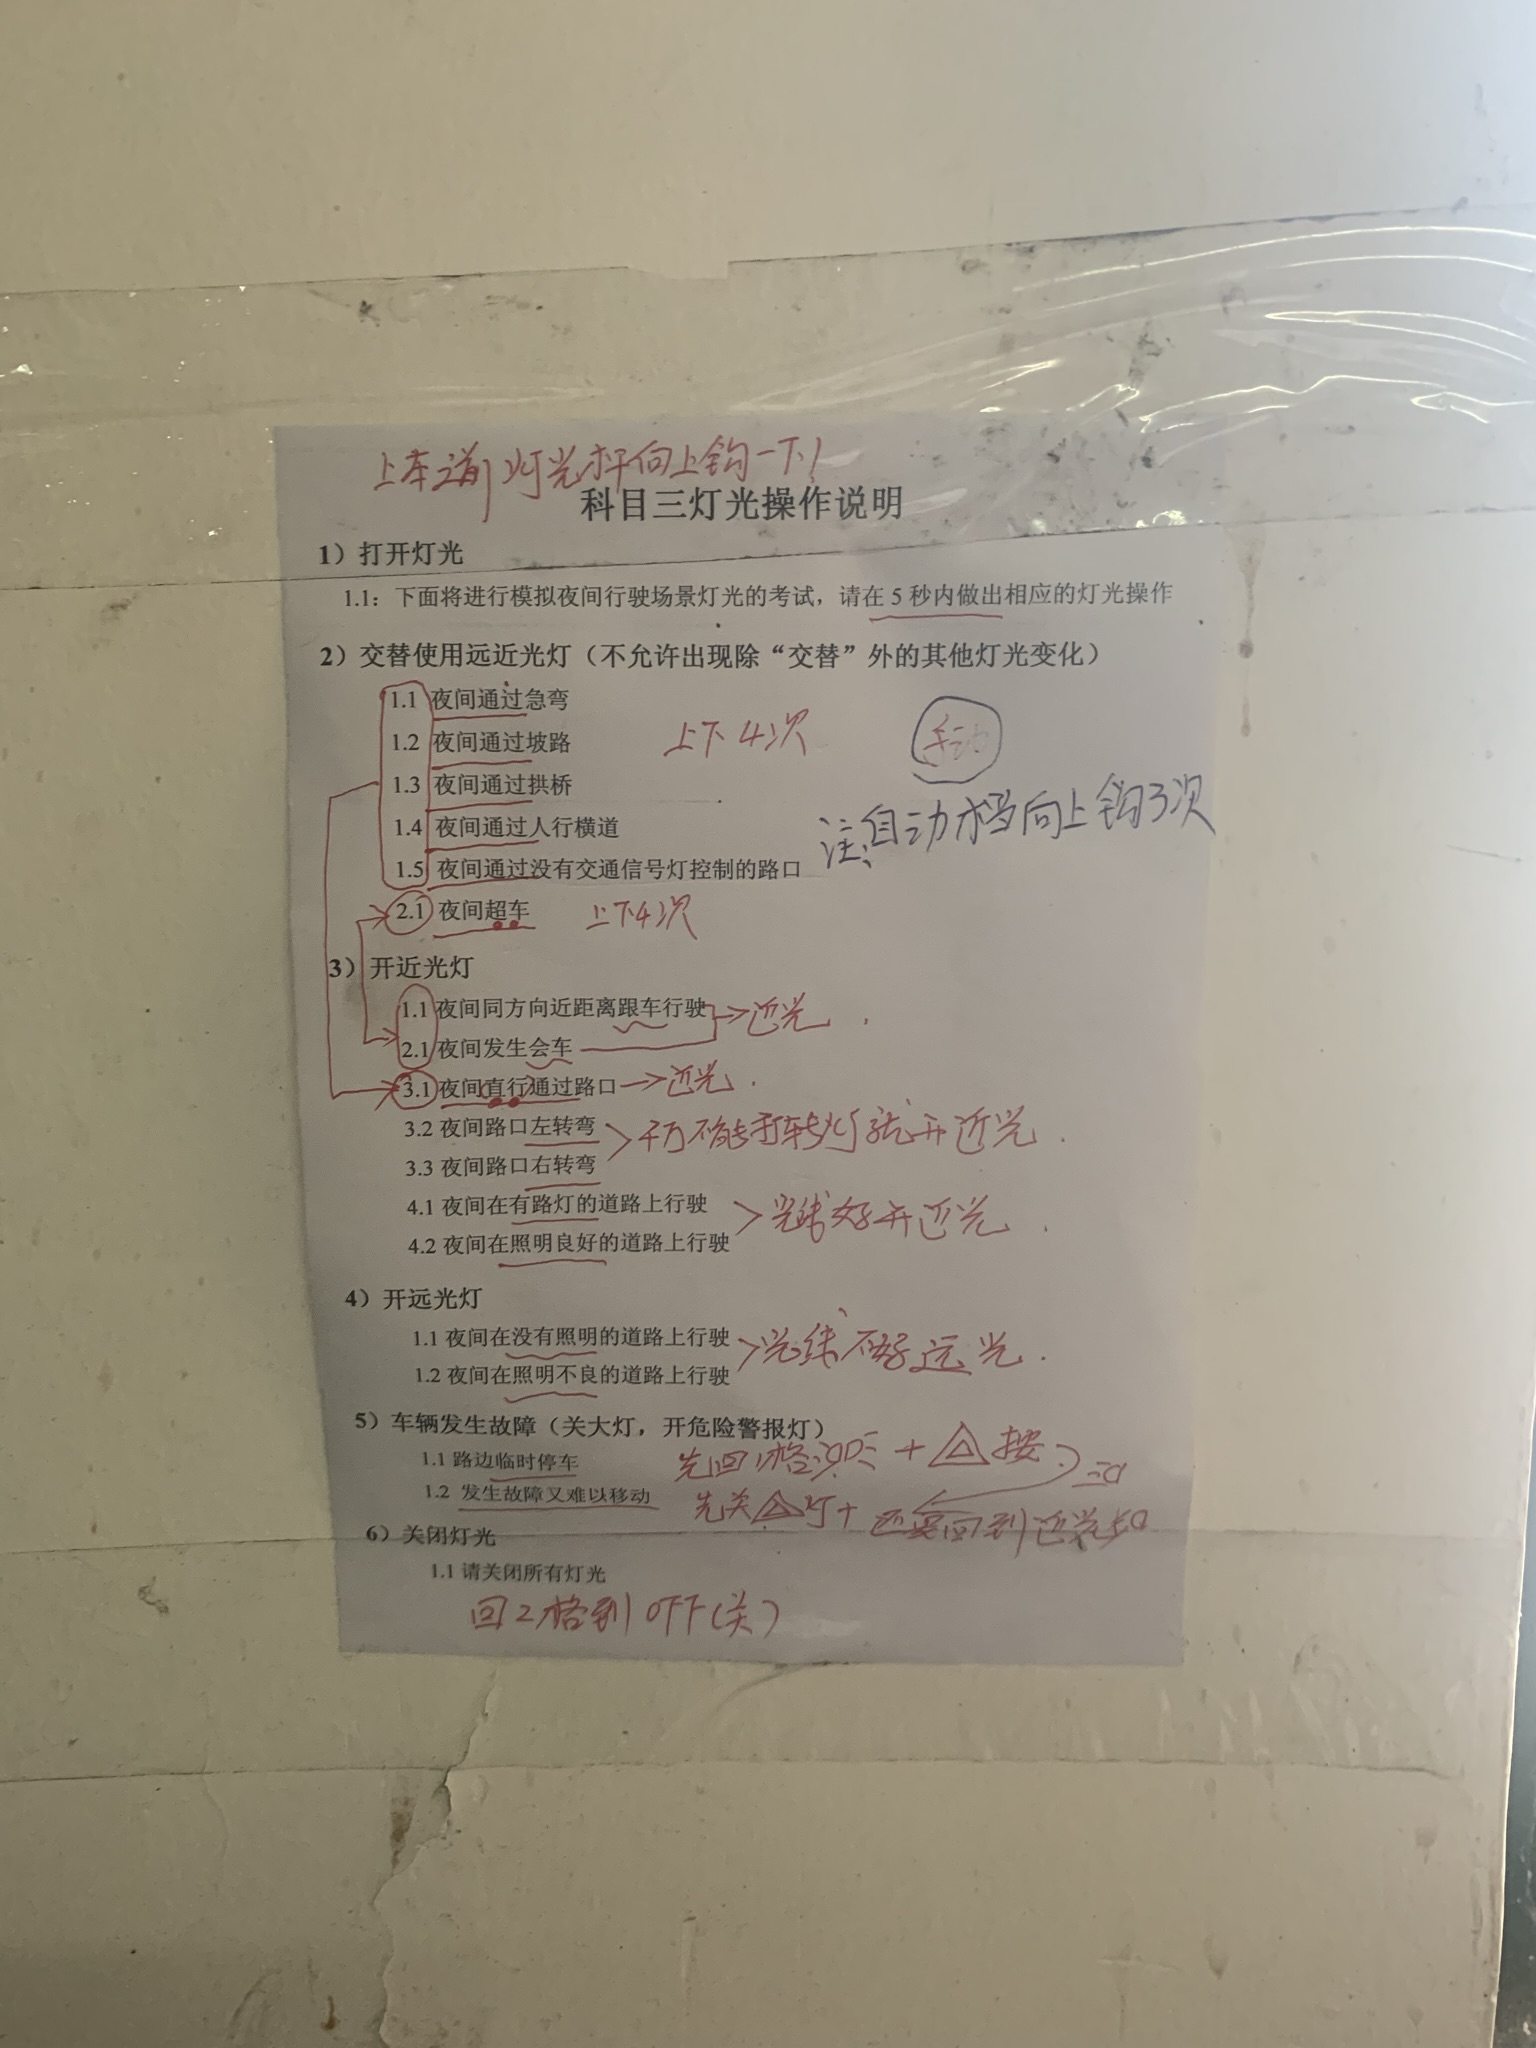 上车之前灯光杆向上钩一下!
科目三灯光操作说明
1）打开灯光
1.1：下面将进行模拟夜间行驶场景灯光的考试，请在 5 秒内做出相应的灯光操作
2）交替使用远近光灯（不允许出现除“交替”外的其他灯光变化）
1.1 夜间通过急弯
1.2 夜间通过坡路 上下4次 手动
1.3 夜间通过拱桥
1.4 夜间通过人行横道 注:自动档向上钩3次
1.5 夜间通过没有交通信号灯控制的路口
2.1 夜间超车 上下4次
3）开近光灯
1.1 夜间同方向近距离跟车行驶 近光.
2.1 夜间发生会车
3.1 夜间直行通过路口 近光.
3.2 夜间路口左转弯 千万不能打转灯就开近光.
3.3 夜间路口右转弯
4.1 夜间在有路灯的道路上行驶 光线好开近光.
4.2 夜间在照明良好的道路上行驶
4）开远光灯
1.1 夜间在没有照明的道路上行驶 光线不好远光.
1.2 夜间在照明不良的道路上行驶
5）车辆发生故障（关大灯，开危险警报灯）
1.1 路边临时停车 先回1格 + 按
1.2 发生故障又难以移动 先关 灯+还要回到近光
6）关闭灯光
1.1 请关闭所有灯光
回2格到OFF(关)